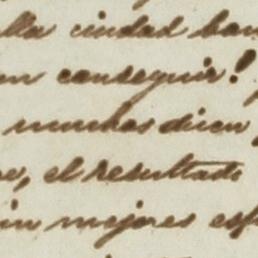 lla ciudad ban
en conseguir!
muchos dicen
e, el resultado
in mejores esf